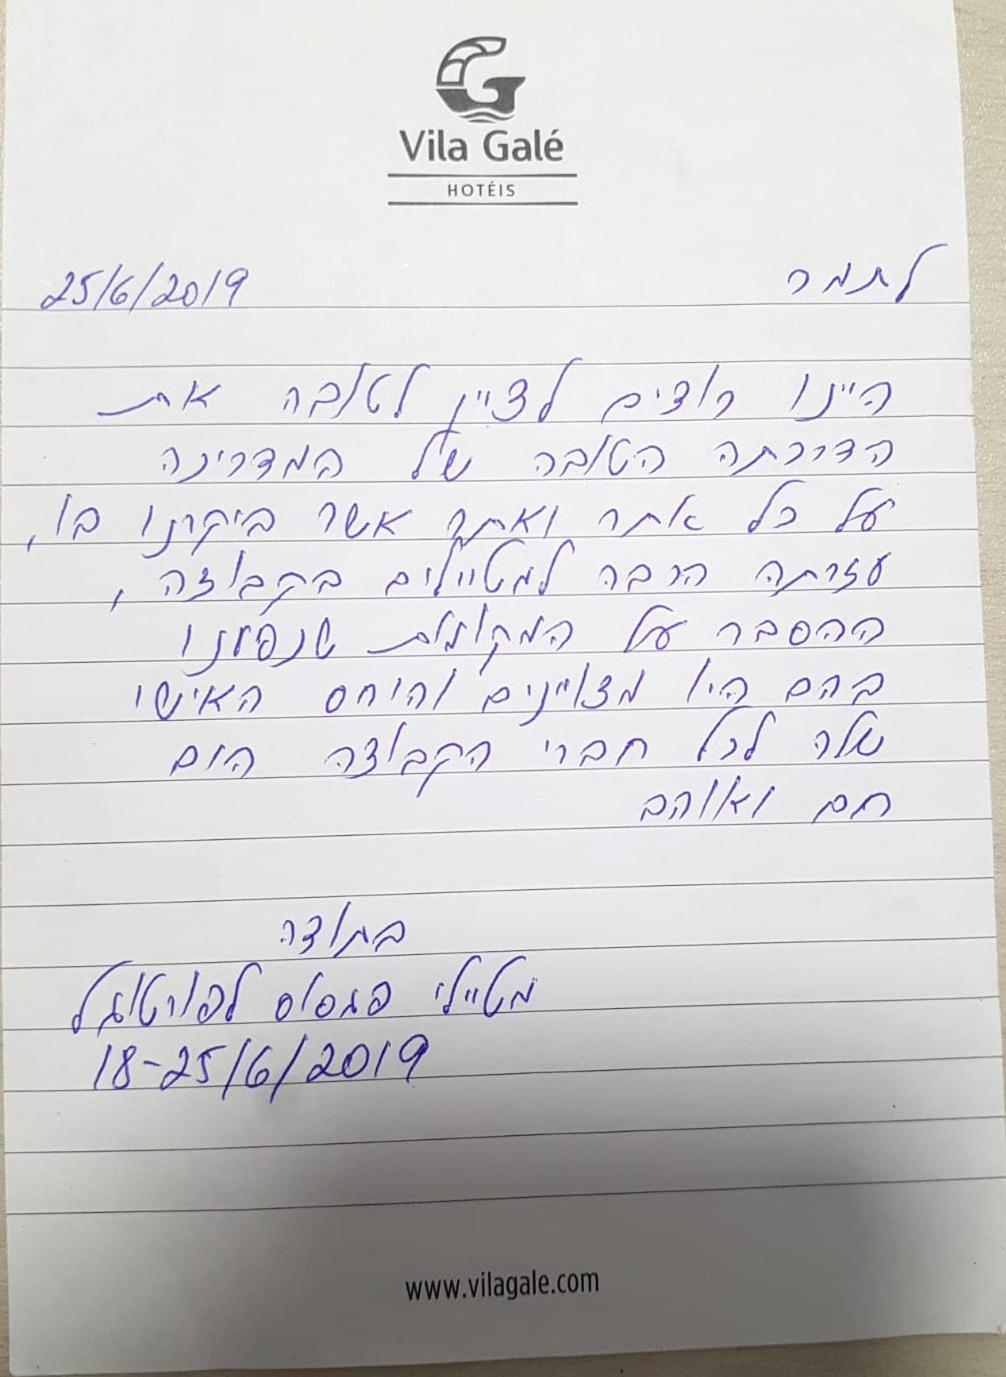 Vila Galé
HOTÉIS
לתמר 25/6/2019
היינו רוצים לציין לטובה את
הדרכתה הטובה של המדריכה
על כל אתר ואתר אשר ביקרנו בו,
עזרתה הרבה למטיילים בקבוצה,
ההסבר על המקומות שנפגשנו
בהם היו מצויינים והיחס האישי
שלה לכל חברי הקבוצה היום
חם ואוהב
בתודה
מטיילי פגסוס לפורטוגל
18-25/6/2019
www.vilagale.com